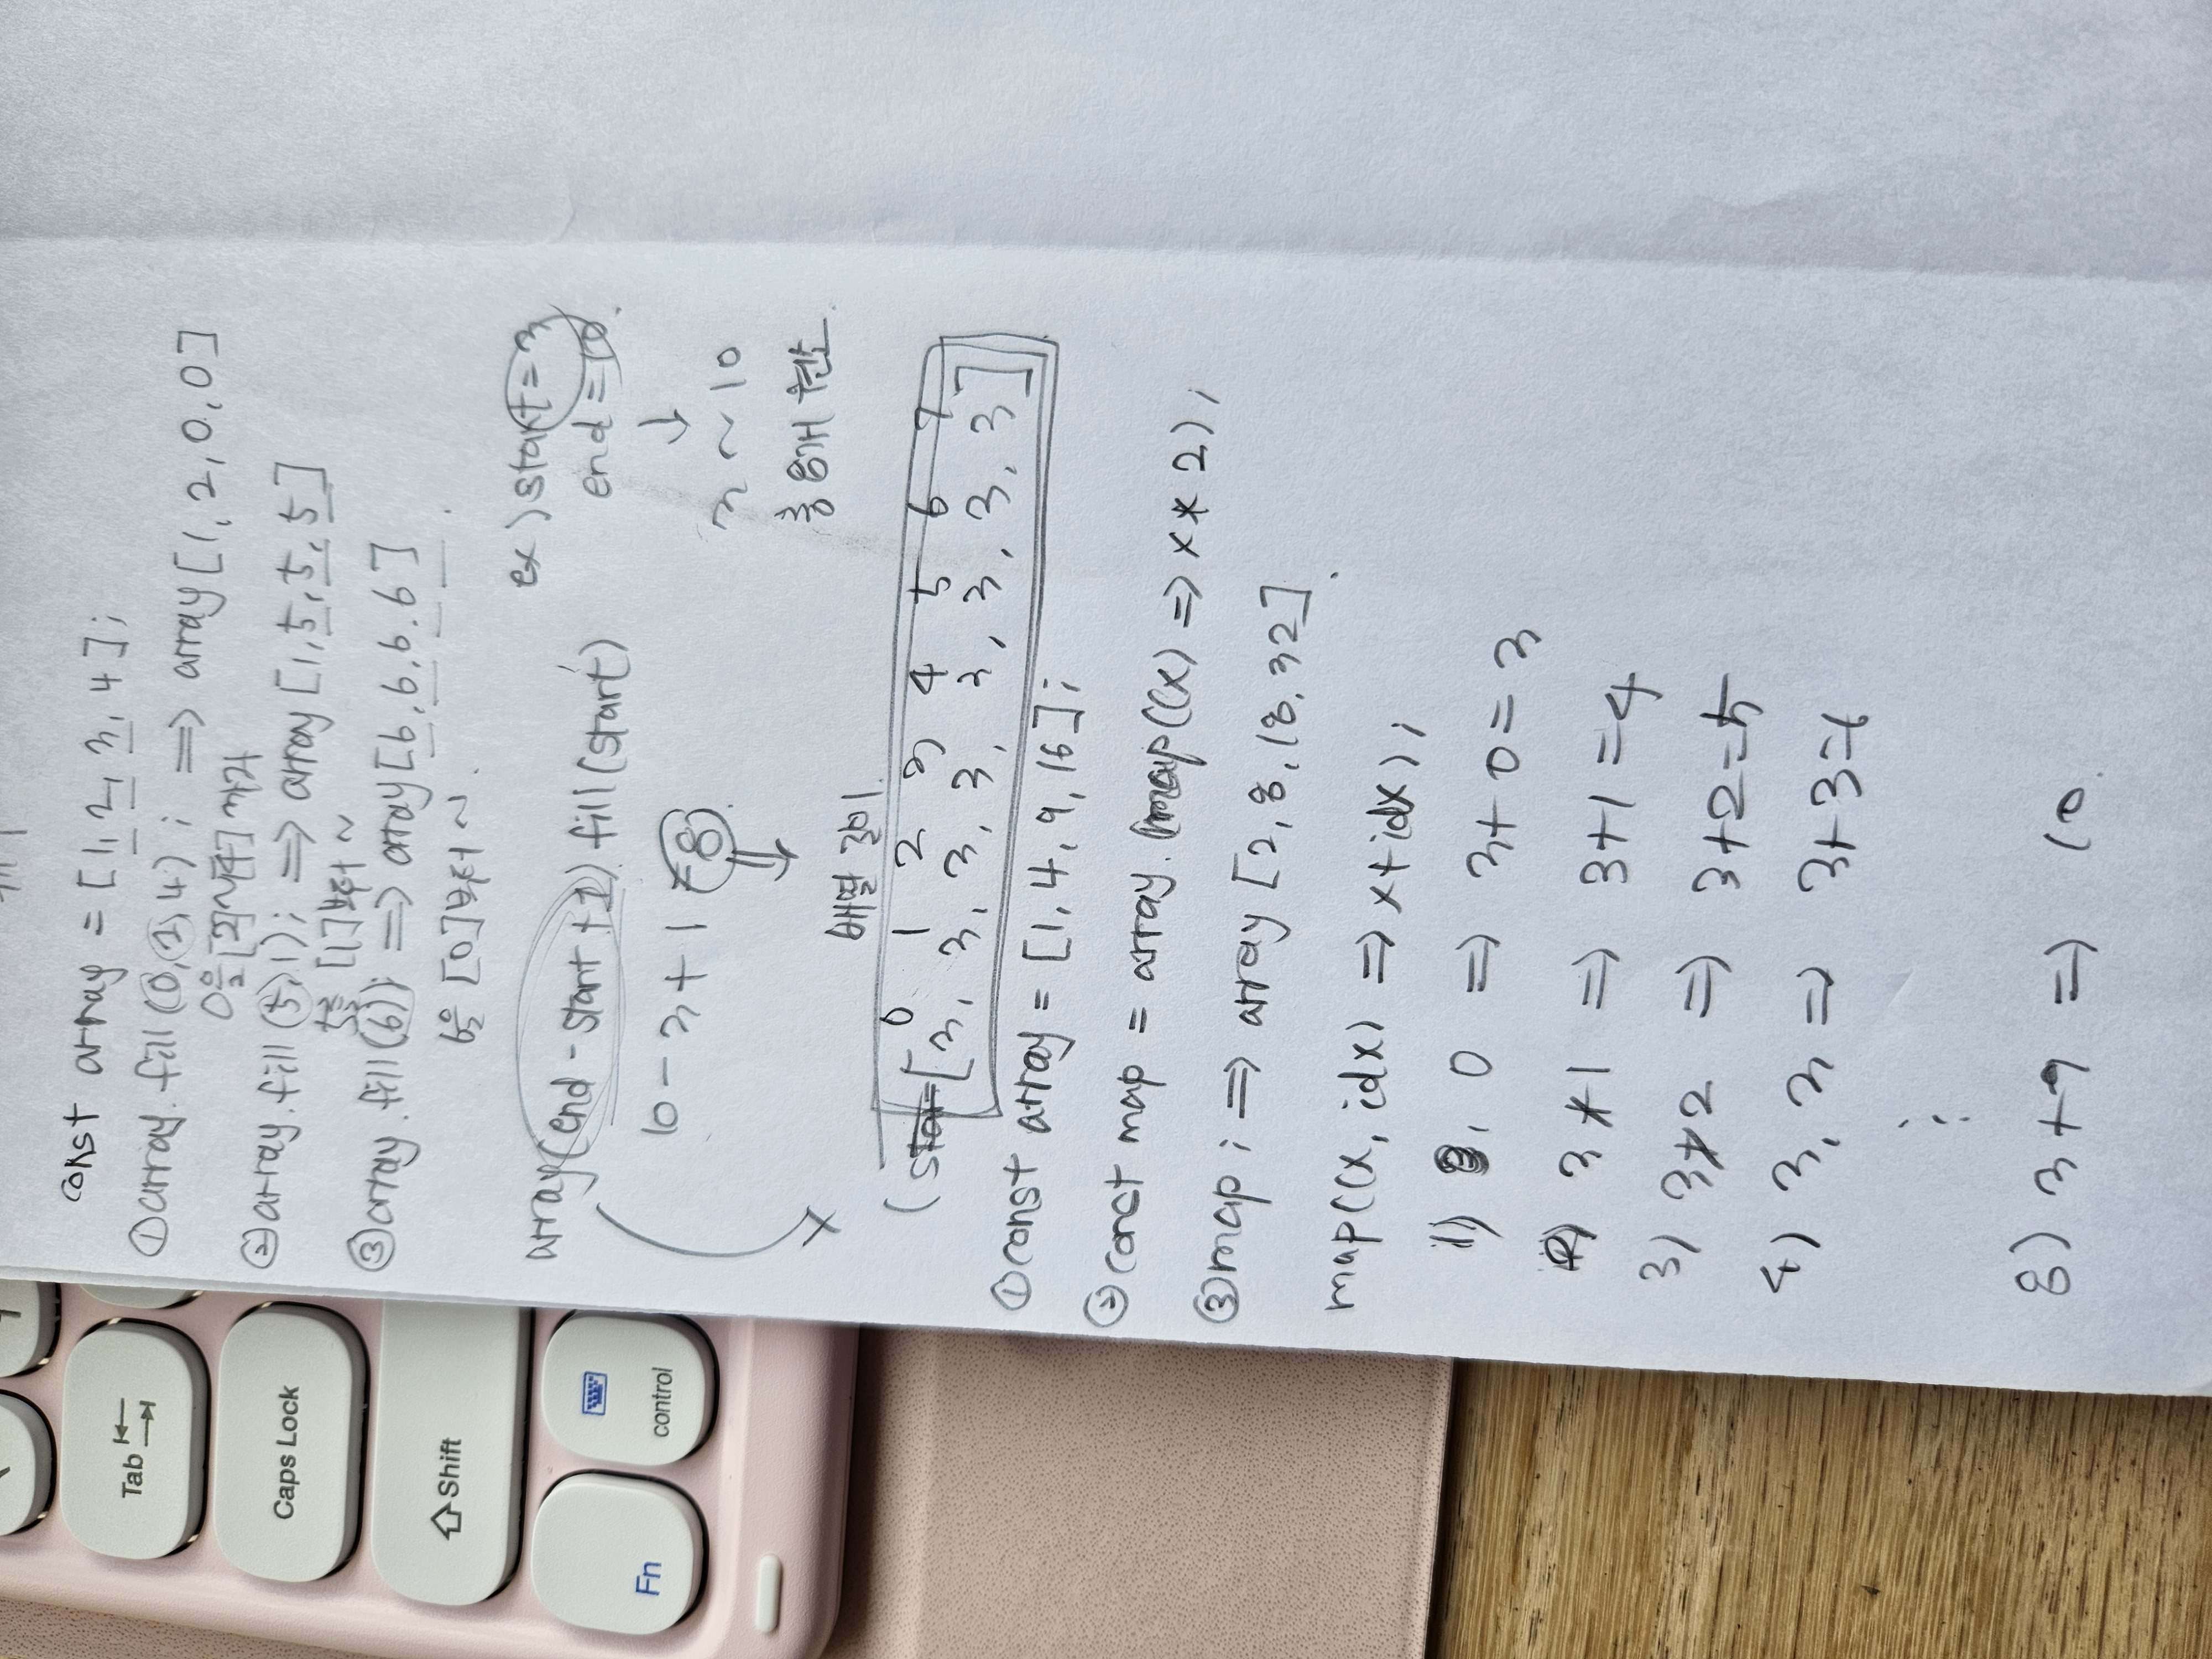 const array = [1, 2, 3, 4];
① array.fill(0, 2, 4); ⇒ array [1, 2, 0, 0]
0을 [2]~[4] 까지
② array.fill(5, 1); ⇒ array [1, 5, 5, 5]
5를 [1]부터 ~
③ array.fill(6); ⇒ array [6, 6, 6, 6]
6을 [0]부터 ~
array(end - start + 1).fill(start)
ex) start = 3
end = 10
↓
3 ~ 10
총 8개 반환
10 - 3 + 1 = 8
배열 길이
0 1 2 3 4 5 6 7
[3, 3, 3, 3, 3, 3, 3, 3]
① const array = [1, 4, 9, 16];
② const map = array.map((x) => x * 2);
③ map; ⇒ array [2, 8, 18, 32]
map((x, idx) => x + idx);
1) 3, 0 ⇒ 3 + 0 = 3
2) 3 + 1 ⇒ 3 + 1 = 4
3) 3 + 2 ⇒ 3 + 2 = 5
4) 3, 3 ⇒ 3 + 3 = 6
8) 3 + 7 ⇒ 10
Tab
Caps Lock
Shift
Fn
control